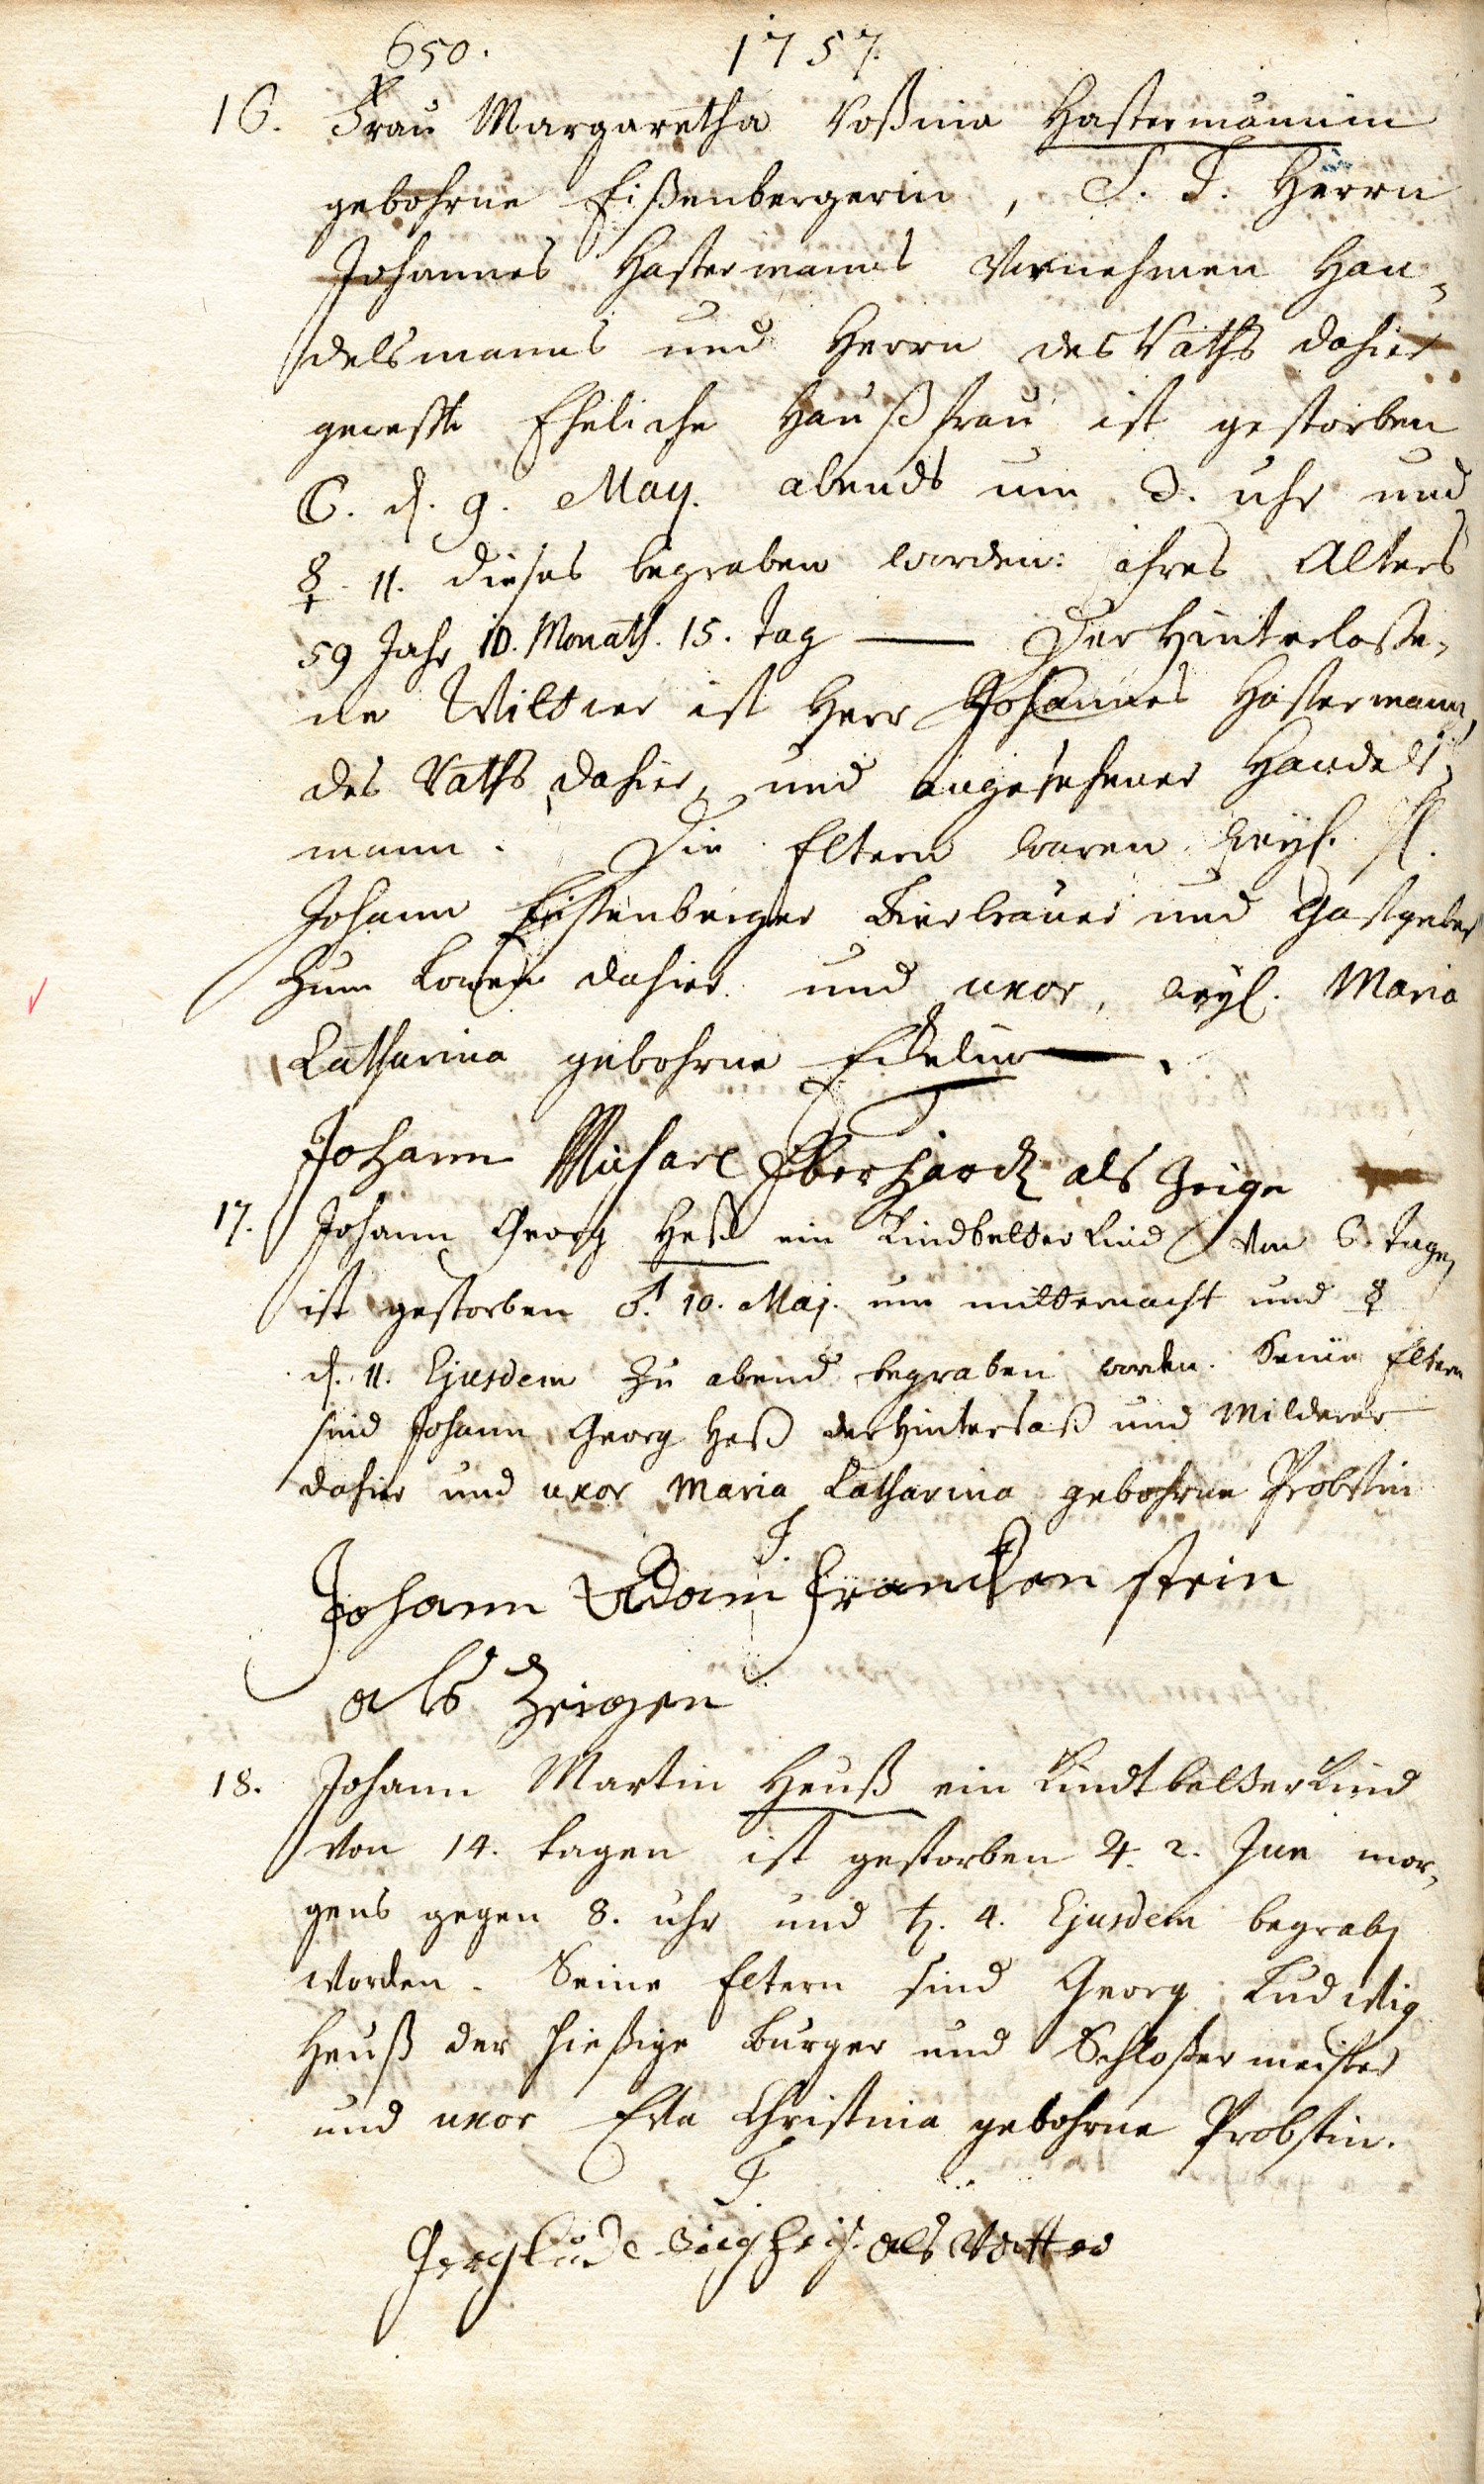 650. 1757.
16. Frau Margaretha Roßina Hastermännin
gebohrne Eißenbergerin, S. T. Herrn
Johannes Hastermanns Vornehmen Han-
delsmanns und Herrn des Raths dahier
geweste Eheliche Haußfrau ist gestorben
☾. d. 9. May. abends um 3. uhr und
☿ 11. dieses begraben worden: ihres Alters
59 Jahr 10. Monath. 15. Tag — Der Hinterlaße-
ne Wittwer ist Herr Johannes Hastermann,
des Raths dahier, und angesehener Handels-
mann. Die Eltern waren weyl.
Johann Eißenberger Bierbrauer und Gastgeber
zum Lowen dahier und uxor, weyl. Maria
Catharina gebohrne Eckelin.
Johann Michael Eberhardt als Zeige
17. Johann Georg Heß ein Kindbetter Kind von 6. Tagen
ist gestorben ♂. 10. Maj. um mitternacht und ☿
d. 11. Ejusdem zu abend begraben worden. Seine Eltern
sind Johann Georg Heß der Hintersaß und Milderer
dahier und uxor Maria Catharina gebohrne Probstin
T.
Johann Adam Francken stein
als Zeigen
18. Johann Martin Heuß ein Kindtbetter Kind
von 14. tagen ist gestorben ♃. 2. Jun mor-
gens gegen 8. uhr und ♄. 4. Ejusdem begraben
worden. Seine Eltern sind Georg Ludwig
Heuß der hießige Burger und Schloßermeister
und uxor Eva Christina gebohrne Probstin.
T.
als Vatter